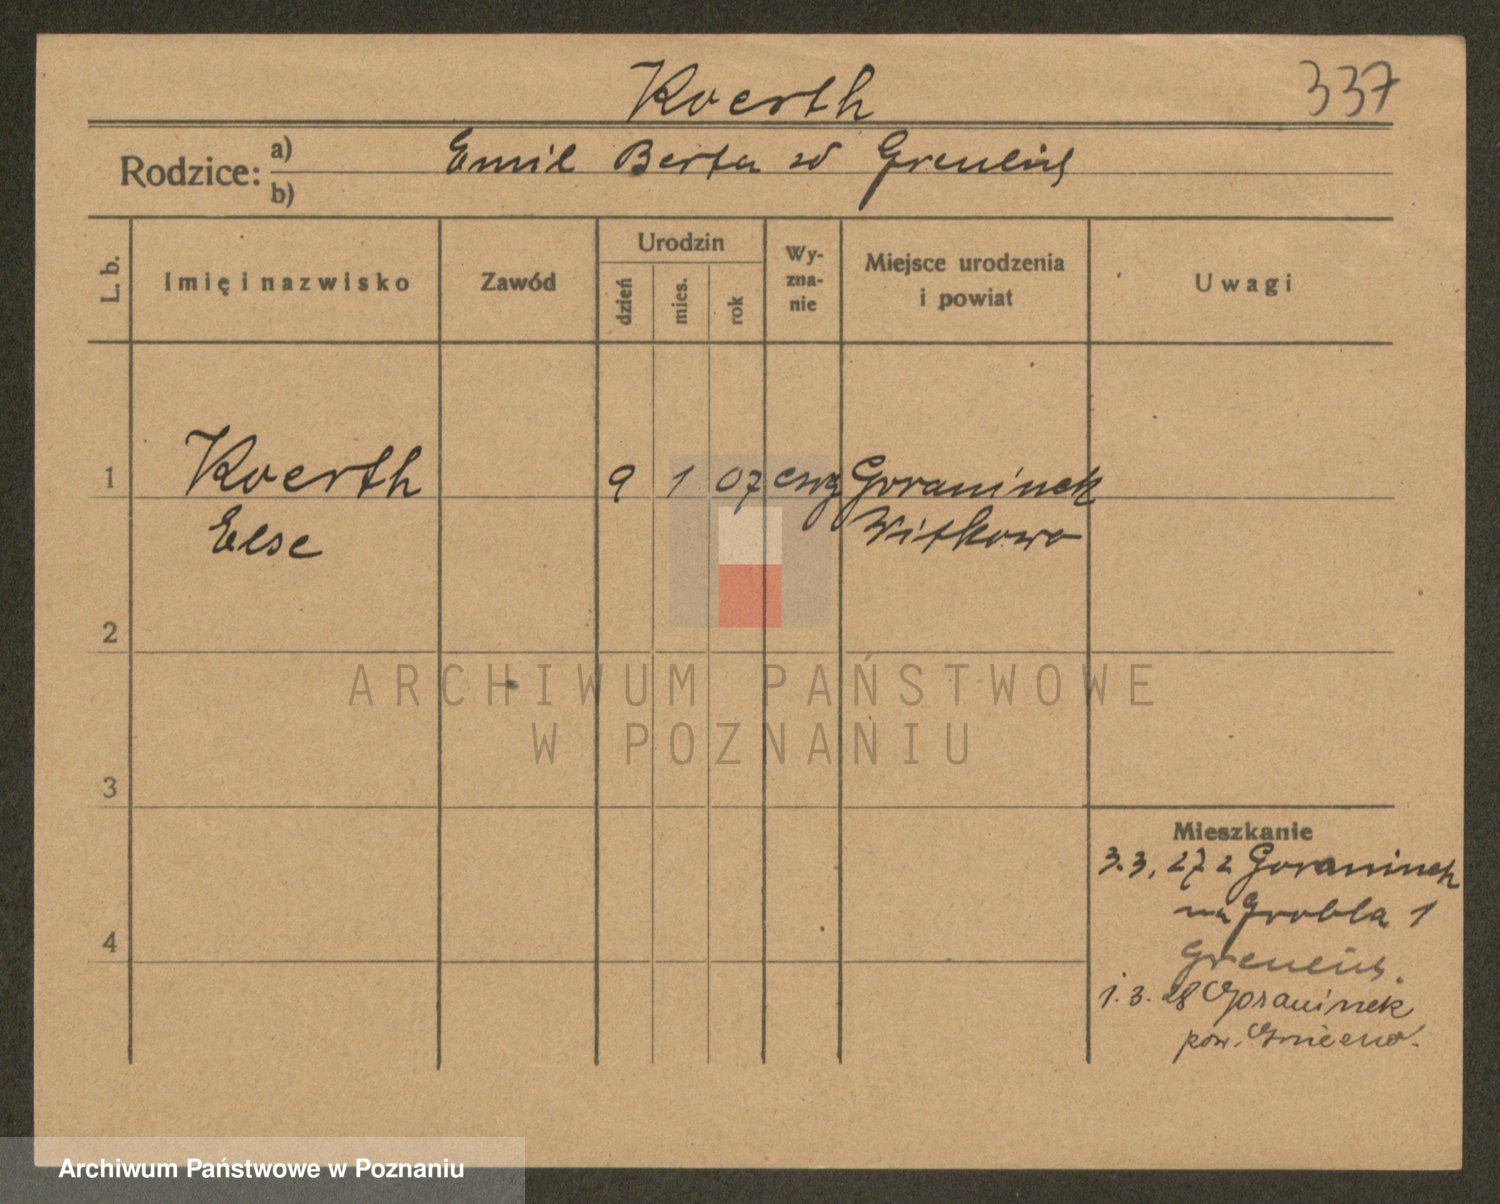 Koerth
337
Rodzice:
a) Emil Berta zd Greulich
b)
L. b.
Imię i nazwisko
Zawód
Urodzin
dzień
mies.
rok
Wy-
zna-
nie
Miejsce urodzenia
i powiat
Uwagi
1
Koerth
Else
9 1 07 ewg Goraninek
Witkowo
2
3
4
Mieszkanie
3.3.27 z Goraninek
na Grobla 1
Greulich.
1.3.28 Goraninek
pow. Gniezno.
ARCHIWUM PAŃSTWOWE
W POZNANIU
Archiwum Państwowe w Poznaniu